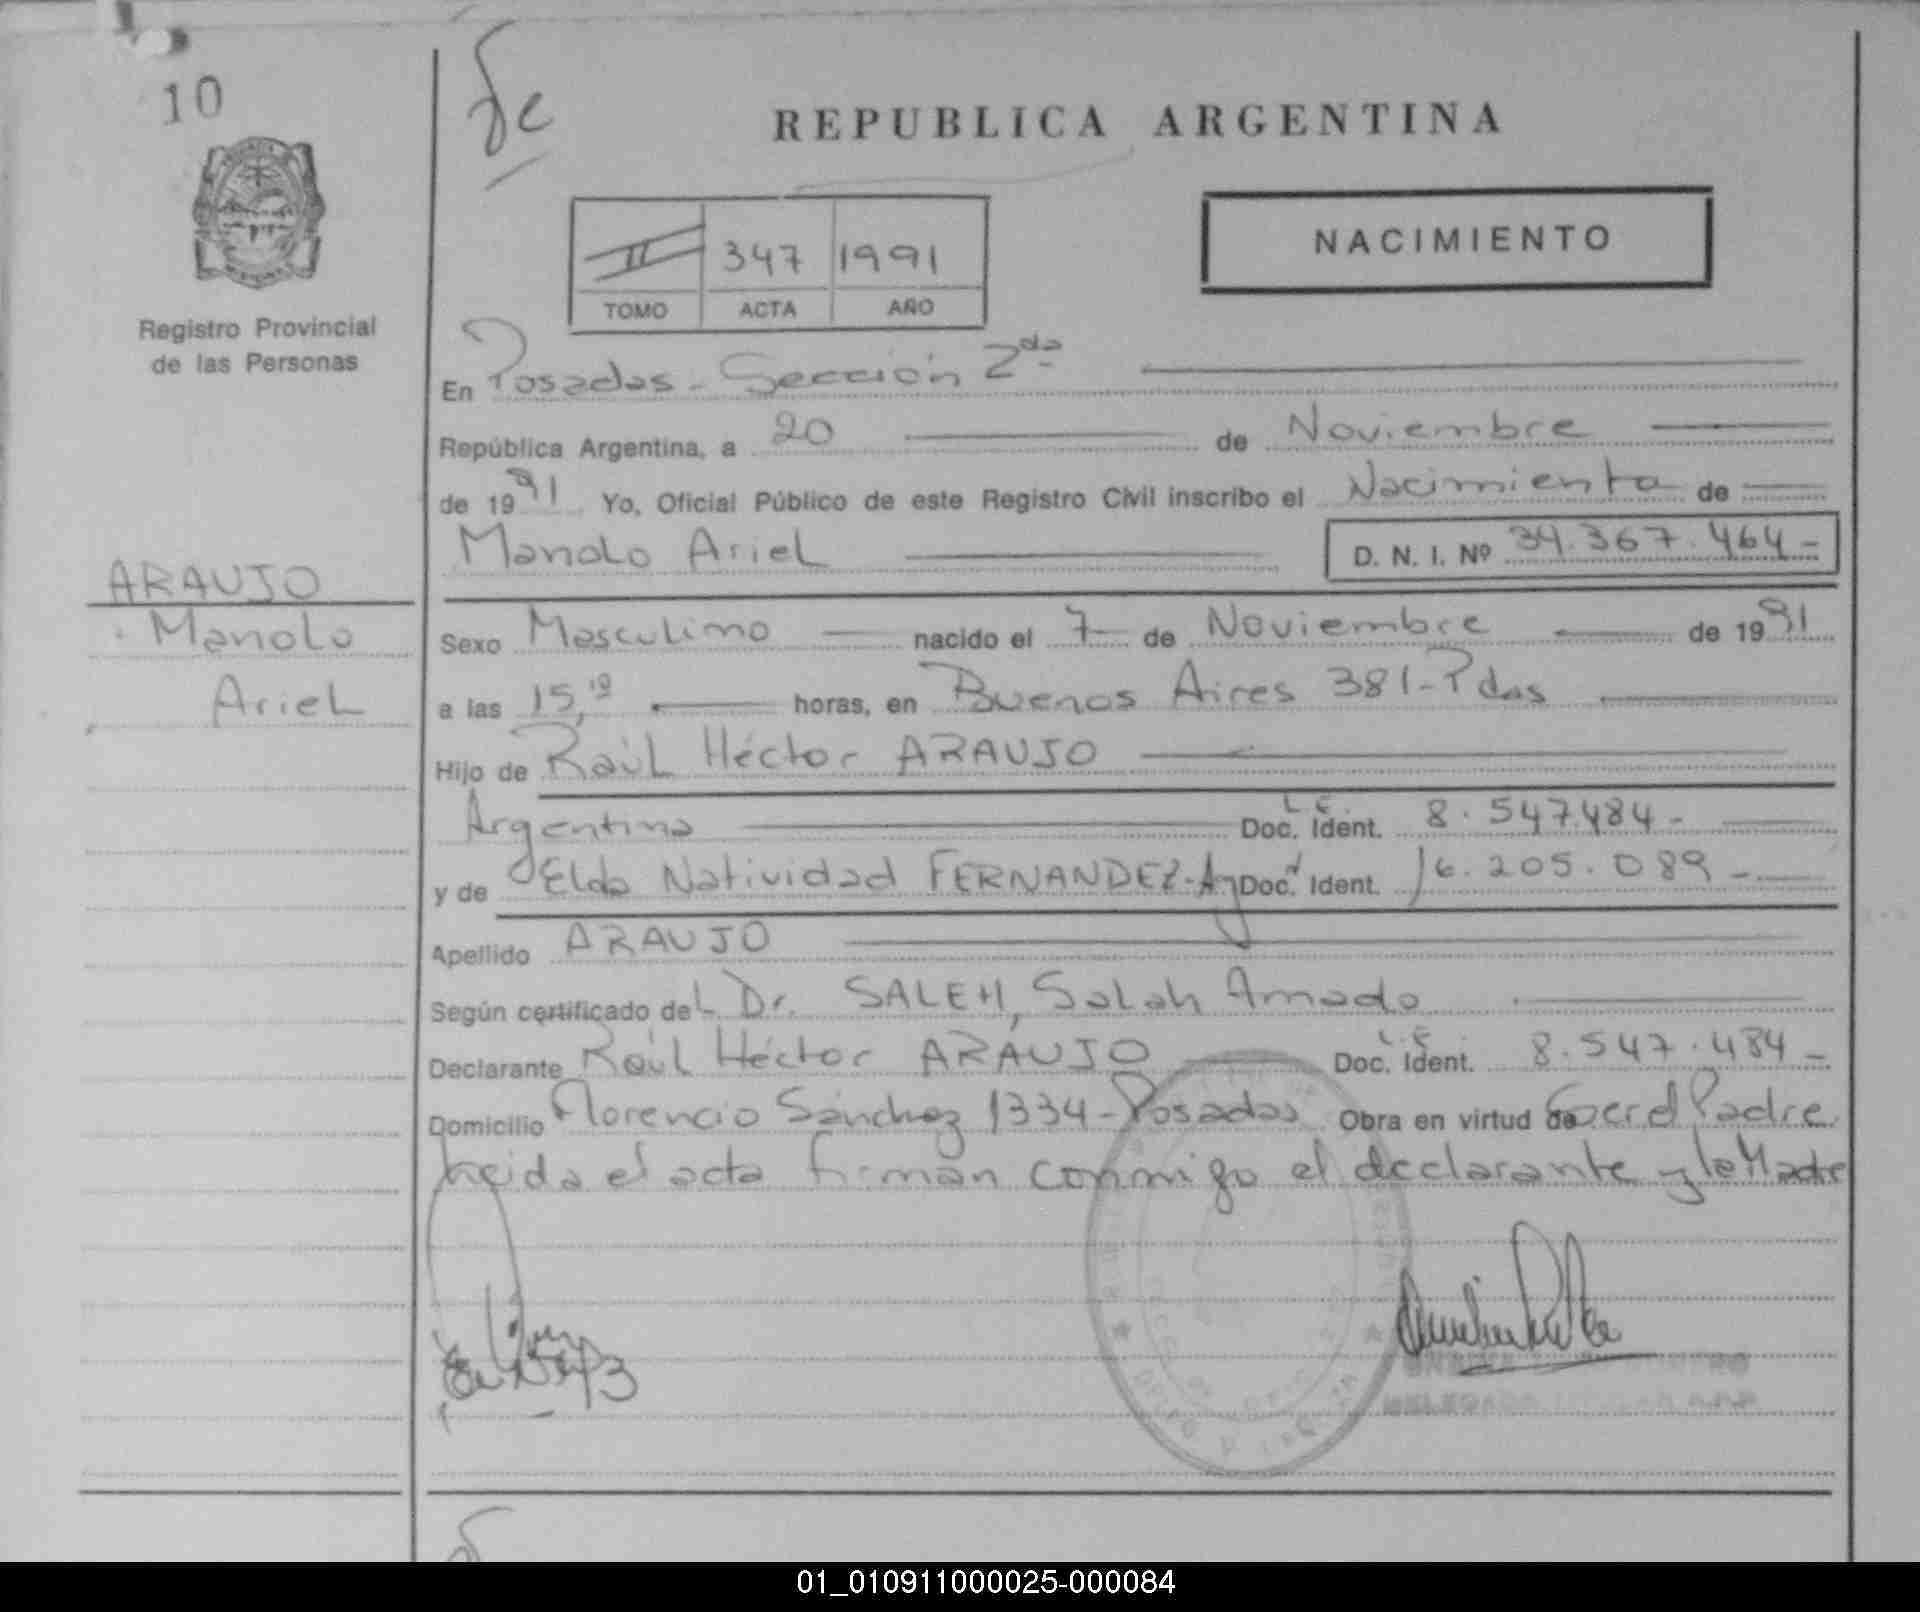 10
REPUBLICA ARGENTINA
NACIMIENTO
II 347 1991
TOMO ACTA AÑO
Registro Provincial
de las Personas
En Posadas - Sección 2da
República Argentina, a 20 de Noviembre
de 1991 Yo, Oficial Público de este Registro Civil inscribo el Nacimiento de
Manolo Ariel D. N. I. Nº 34.367.464-
ARAUJO
Manolo
Ariel
Sexo Masculino nacido el 7 de Noviembre de 1991
a las 15,10 horas, en Buenos Aires 381-Pdas
Hijo de Raúl Héctor ARAUJO
Argentino Doc. Ident. L.E. 8.547.484-
y de Elda Natividad FERNANDEZ- Doc. Ident. 16.205.089-
Apellido ARAUJO
Según certificado del Dr. SALEH, Salah Amado
Declarante Raúl Héctor ARAUJO Doc. Ident. L.E. 8.547.484-
Domicilio Florencio Sánchez 1334-Posadas Obra en virtud de Ser el Padre
Leida el acta firman conmigo el declarante y la Madre
01_010911000025-000084